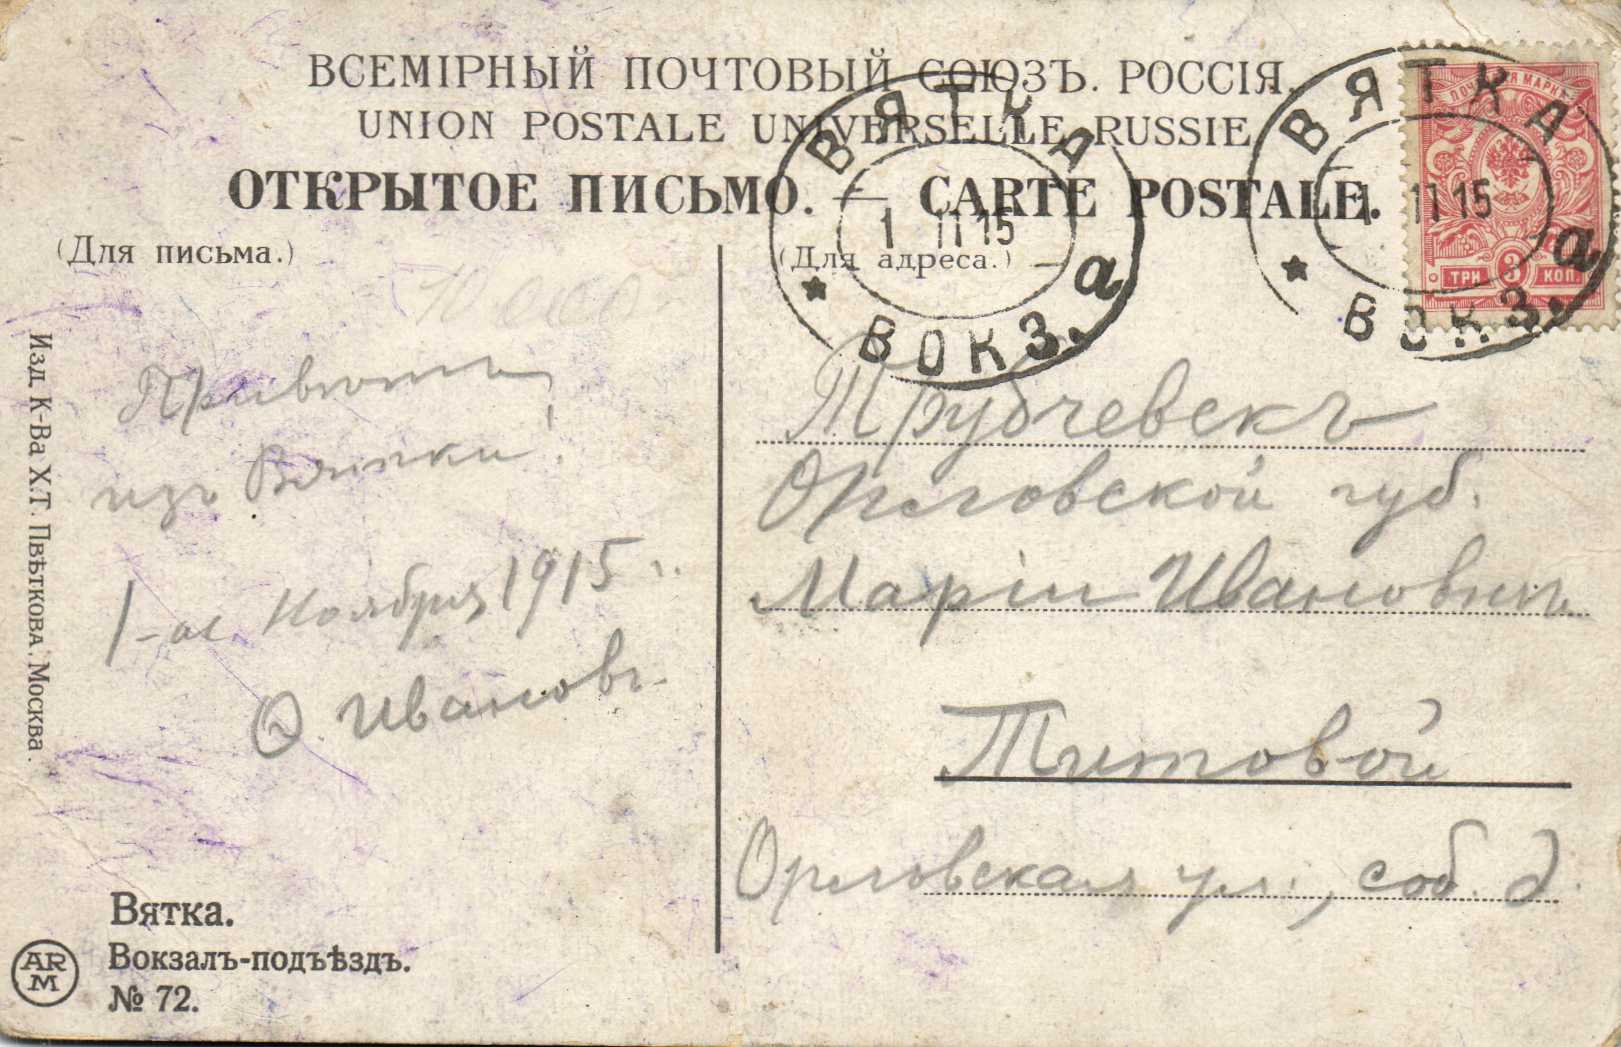 ВСЕМІРНЫЙ ПОЧТОВЫЙ СОЮЗЪ. РОССІЯ.
UNION POSTALE UNIVERSELLE RUSSIE
ОТКРЫТОЕ ПИСЬМО. — CARTE POSTALE.
(Для письма.)
(Для адреса.)
ВЯТКА
1 11 15
а
ВОКЗ.
ВЯТКА
1 11 15
а
ВОКЗ.
ПОЧТОВАЯ МАРКА
ТРИ 3 КОП
Привѣтъ
изъ Вятки!
1-ое Ноября 1915 г.
О. Ивановъ.
Трубчевскъ
Орловской губ.
Маріи Ивановнѣ
Титовой
Орловская ул., соб. д.
Изд К-Ва Х.Т. Цвѣткова. Москва.
Вятка.
Вокзалъ-подъѣздъ.
№ 72.
ARM